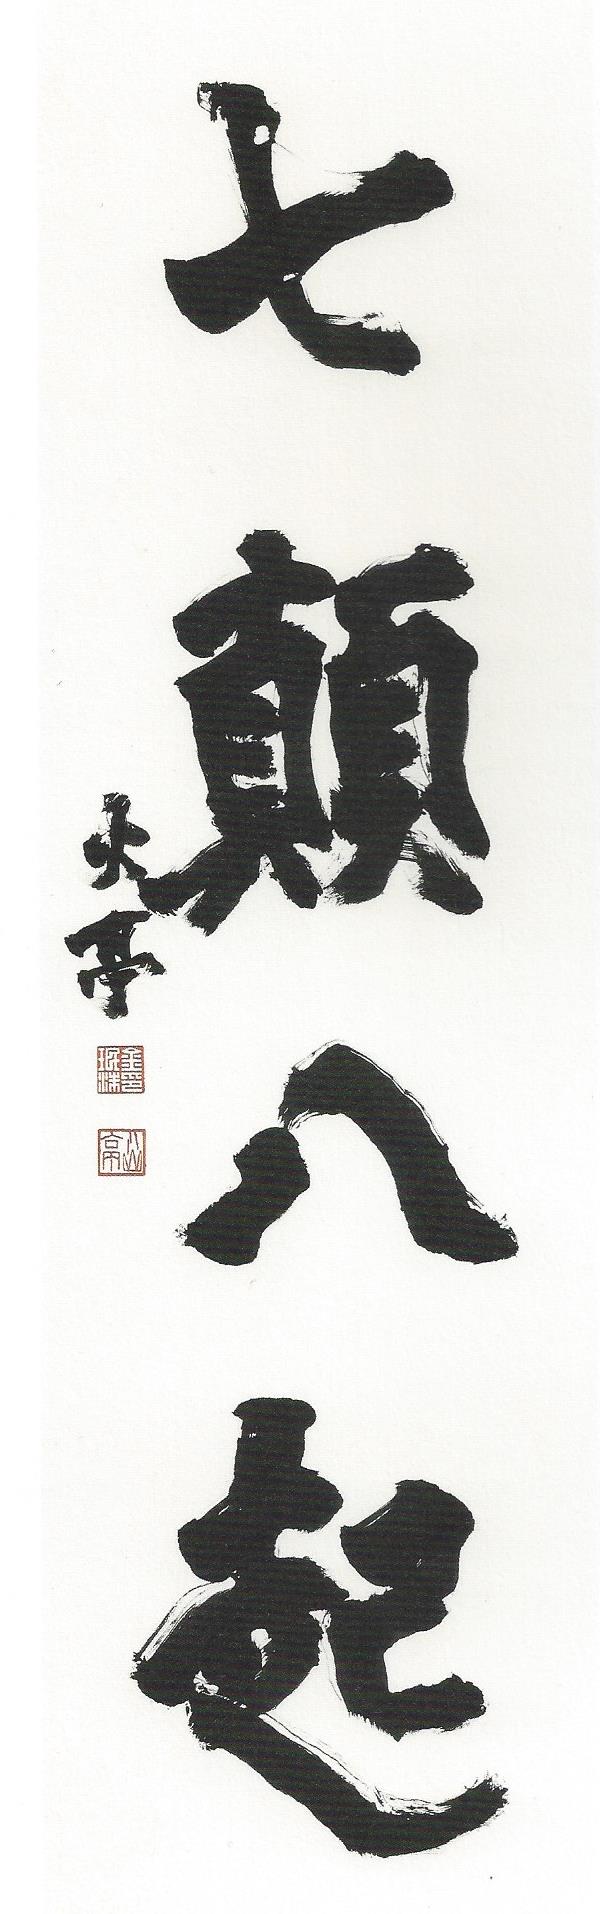 七顛八起
火亭